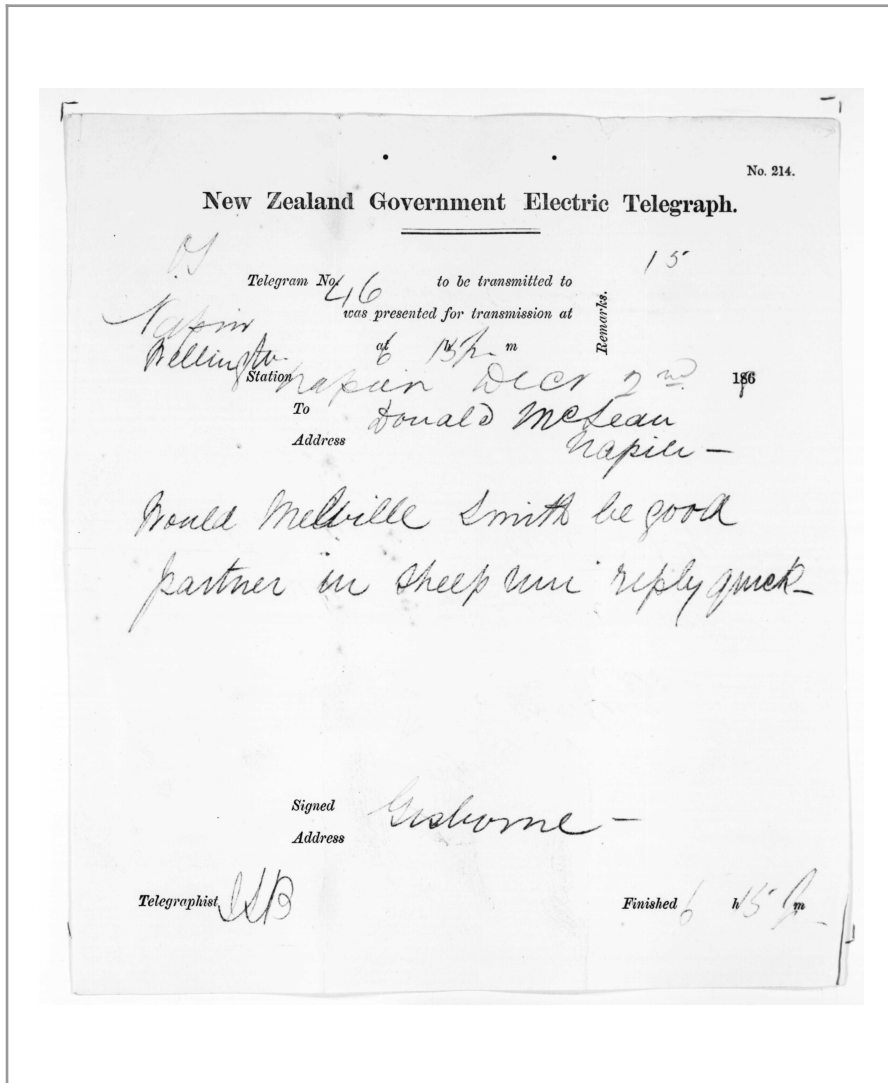 No. 214.
New Zealand Government Electric Telegraph.
15
Telegram No. 46 to be transmitted to
Napier
was presented for transmission at
Remarks.
Wellington at 6 h 15 p m
Station Napier Decr 2nd 186
To Donald McLean
Address Napier —
Would Melville Smith be good
partner in sheep run reply quick —
Signed Gisborne —
Address
Telegraphist
Finished 6 h 15 p m